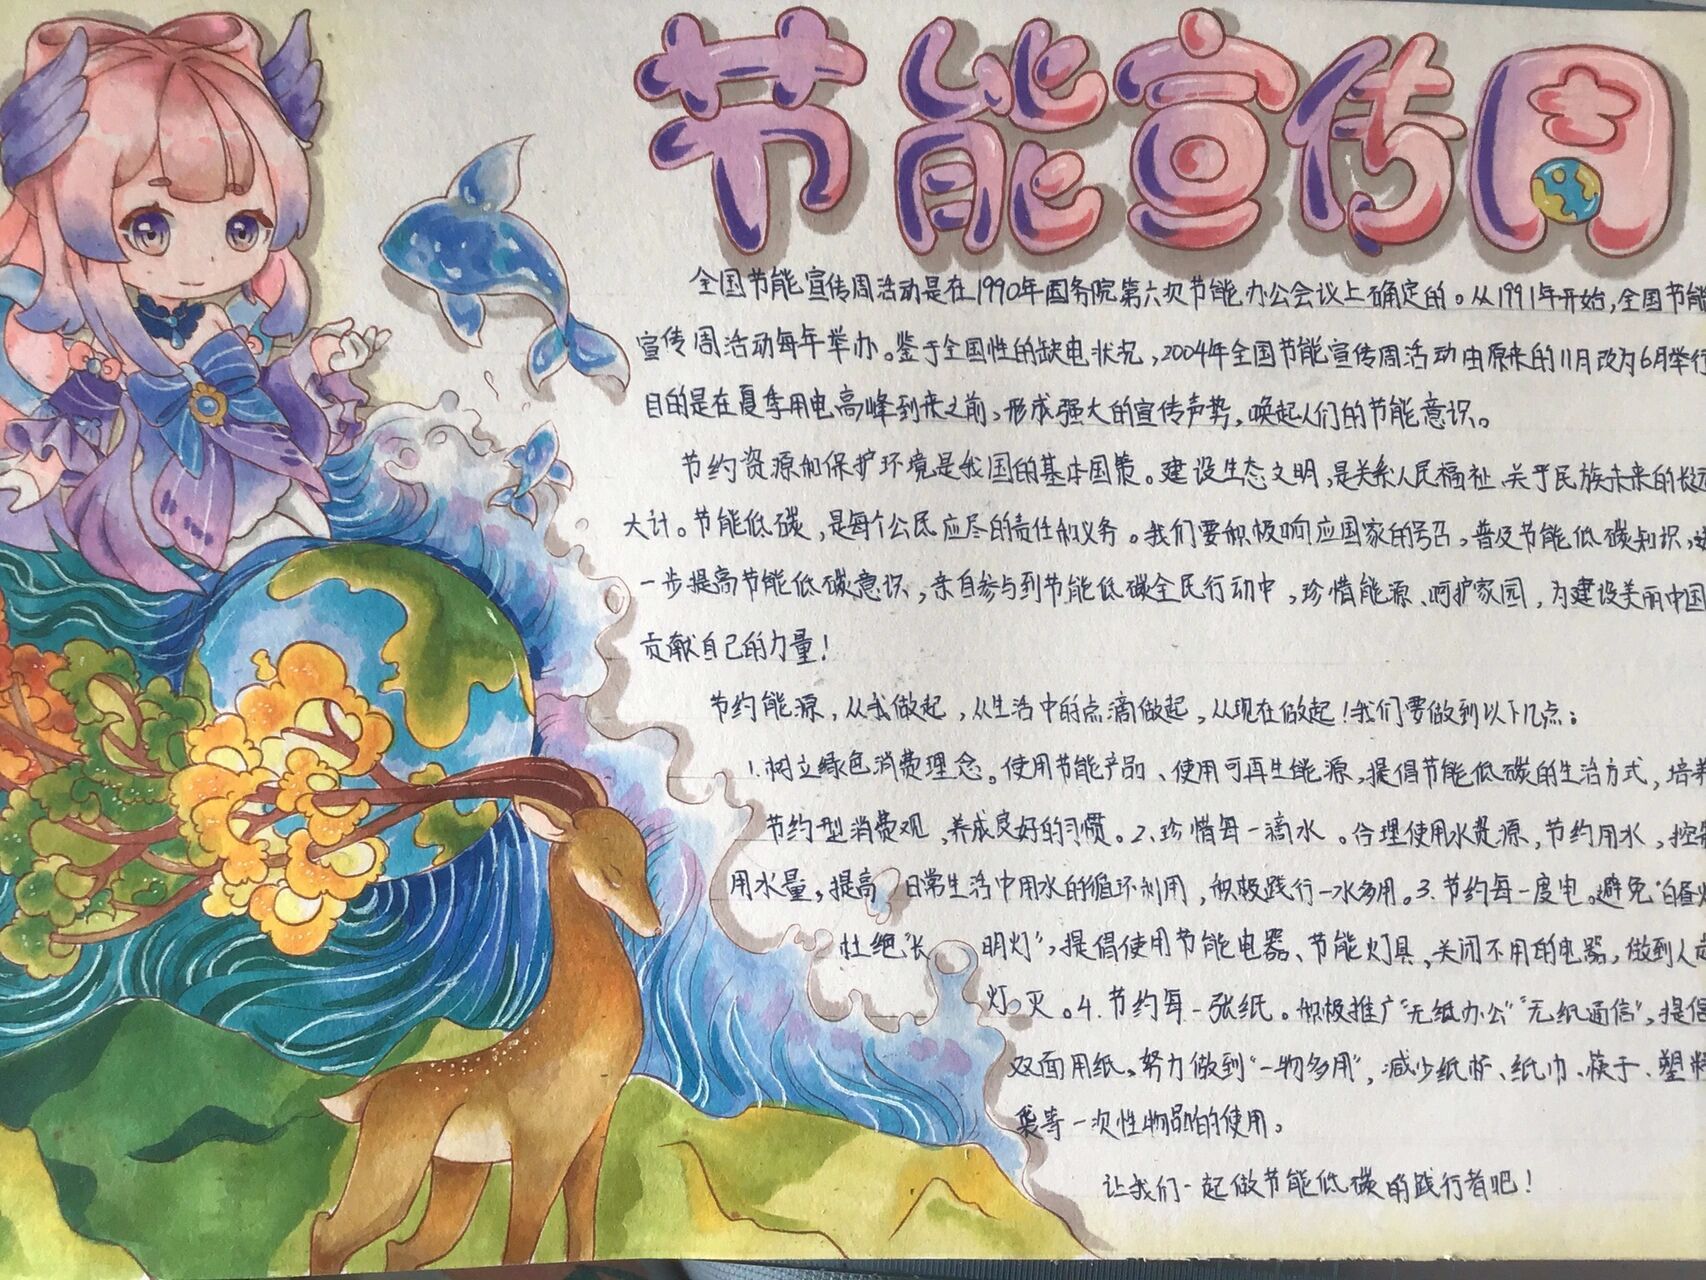 节能宣传周
全国节能宣传周活动是在1990年国务院第六次节能办公会议上确定的。从1991年开始,全国节能
宣传周活动每年举办。鉴于全国性的缺电状况,2004年全国节能宣传周活动由原来的11月改为6月举行
目的是在夏季用电高峰到来之前,形成强大的宣传声势,唤起人们的节能意识。
节约资源和保护环境是我国的基本国策。建设生态文明,是关系人民福祉、关于民族未来的长远
大计。节能低碳,是每个公民应尽的责任和义务。我们要积极响应国家的号召,普及节能低碳知识,
一步提高节能低碳意识,亲自参与到节能低碳全民行动中,珍惜能源、呵护家园,为建设美丽中国
贡献自己的力量!
节约能源,从我做起,从生活中的点滴做起,从现在做起!我们要做到以下几点:
1.树立绿色消费理念。使用节能产品、使用可再生能源,提倡节能低碳的生活方式,培养
节约型消费观,养成良好的习惯。2.珍惜每一滴水。合理使用水资源,节约用水,控制
用水量,提高日常生活中用水的循环利用,积极践行一水多用。3.节约每一度电。避免"白昼灯
杜绝"长明灯",提倡使用节能电器、节能灯具,关闭不用的电器,做到人走
灯灭。4.节约每一张纸。积极推广"无纸办公""无纸通信",提倡
双面用纸,努力做到"一物多用",减少纸杯、纸巾、筷子、塑料
袋等一次性物品的使用。
让我们一起做节能低碳的践行者吧!